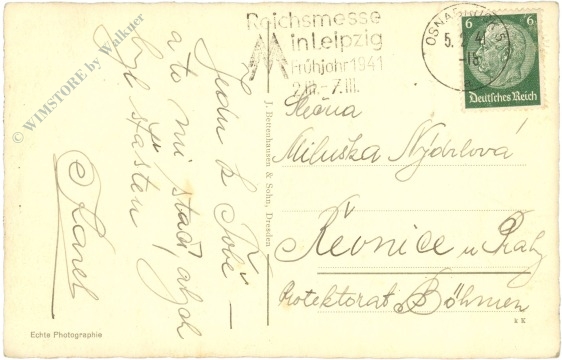 Reichsmesse
in Leipzig
Frühjahr 1941
2.III.-7.III.
5. 2. 4
6 6
Deutsches Reich
Jedu k Tobě —
a to mi stačí, abych
byl šťasten!
Karel
Slečna
Miluška Nýdrlová
Řevnice u Prahy
Protektorat Böhmen
J. Bettenhausen & Sohn, Dresden
Echte Photographie
x K
© WIMSTORE by Walkner